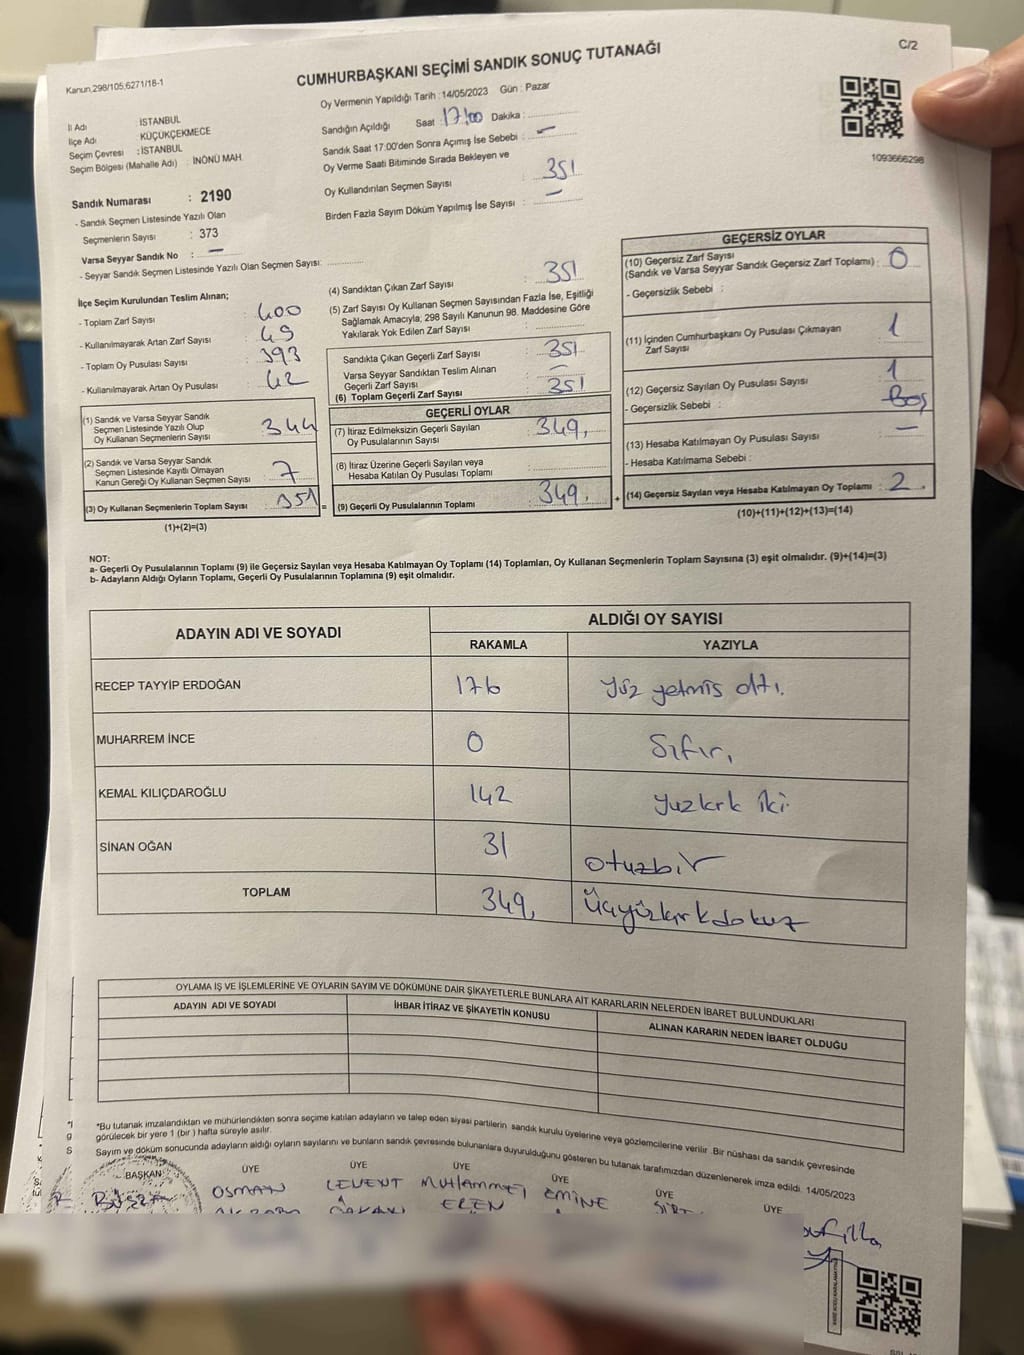 Kanun,298/105,6271/18-1
CUMHURBAŞKANI SEÇİMİ SANDIK SONUÇ TUTANAĞI
C/2
1093666298
İl Adı : İSTANBUL
İlçe Adı : KÜÇÜKÇEKMECE
Seçim Çevresi : İSTANBUL
Seçim Bölgesi (Mahalle Adı) : İNÖNÜ MAH.
Sandık Numarası : 2190
- Sandık Seçmen Listesinde Yazılı Olan
Seçmenlerin Sayısı : 373
Varsa Seyyar Sandık No : —
- Seyyar Sandık Seçmen Listesinde Yazılı Olan Seçmen Sayısı:
Oy Vermenin Yapıldığı Tarih : 14/05/2023 Gün : Pazar
Sandığın Açıldığı Saat : 17:00 Dakika :
Sandık Saat 17:00'den Sonra Açımış İse Sebebi : —
Oy Verme Saati Bitiminde Sırada Bekleyen ve
Oy Kullandırılan Seçmen Sayısı : 351
Birden Fazla Sayım Döküm Yapılmış İse Sayısı : —
İlçe Seçim Kurulundan Teslim Alınan;
- Toplam Zarf Sayısı : 400
- Kullanılmayarak Artan Zarf Sayısı : 49
- Toplam Oy Pusulası Sayısı : 393
- Kullanılmayarak Artan Oy Pusulası : 42
(1) Sandık ve Varsa Seyyar Sandık
Seçmen Listesinde Yazılı Olup
Oy Kullanan Seçmenlerin Sayısı : 344
(2) Sandık ve Varsa Seyyar Sandık
Seçmen Listesinde Kayıtlı Olmayan
Kanun Gereği Oy Kullanan Seçmen Sayısı : 7
(3) Oy Kullanan Seçmenlerin Toplam Sayısı : 351
(1)+(2)=(3)
(4) Sandıktan Çıkan Zarf Sayısı : 351
(5) Zarf Sayısı Oy Kullanan Seçmen Sayısından Fazla İse, Eşitliği
Sağlamak Amacıyla; 298 Sayılı Kanunun 98. Maddesine Göre
Yakılarak Yok Edilen Zarf Sayısı :
Sandıkta Çıkan Geçerli Zarf Sayısı : 351
Varsa Seyyar Sandıktan Teslim Alınan
Geçerli Zarf Sayısı : —
(6) Toplam Geçerli Zarf Sayısı : 351
GEÇERLİ OYLAR
(7) İtiraz Edilmeksizin Geçerli Sayılan
Oy Pusulalarının Sayısı : 349,
(8) İtiraz Üzerine Geçerli Sayılan veya
Hesaba Katılan Oy Pusulası Toplamı :
= (9) Geçerli Oy Pusulalarının Toplamı : 349,
GEÇERSİZ OYLAR
(10) Geçersiz Zarf Sayısı
(Sandık ve Varsa Seyyar Sandık Geçersiz Zarf Toplamı) : 0
- Geçersizlik Sebebi :
(11) İçinden Cumhurbaşkanı Oy Pusulası Çıkmayan
Zarf Sayısı : 1
(12) Geçersiz Sayılan Oy Pusulası Sayısı : 1
- Geçersizlik Sebebi : Boş
(13) Hesaba Katılmayan Oy Pusulası Sayısı : —
- Hesaba Katılmama Sebebi :
+ (14) Geçersiz Sayılan veya Hesaba Katılmayan Oy Toplamı : 2
(10)+(11)+(12)+(13)=(14)
NOT:
a- Geçerli Oy Pusulalarının Toplamı (9) ile Geçersiz Sayılan veya Hesaba Katılmayan Oy Toplamı (14) Toplamları, Oy Kullanan Seçmenlerin Toplam Sayısına (3) eşit olmalıdır. (9)+(14)=(3)
b- Adayların Aldığı Oyların Toplamı, Geçerli Oy Pusulalarının Toplamına (9) eşit olmalıdır.
ADAYIN ADI VE SOYADI
ALDIĞI OY SAYISI
RAKAMLA YAZIYLA
RECEP TAYYİP ERDOĞAN 176 Yüz yetmiş altı.
MUHARREM İNCE 0 Sıfır,
KEMAL KILIÇDAROĞLU 142 Yuzkırk iki
SİNAN OĞAN 31 otuzbir
TOPLAM 349, Üçyüzkırkdokuz
OYLAMA İŞ VE İŞLEMLERİNE VE OYLARIN SAYIM VE DÖKÜMÜNE DAİR ŞİKAYETLERLE BUNLARA AİT KARARLARIN NELERDEN İBARET BULUNDUKLARI
ADAYIN ADI VE SOYADI İHBAR İTİRAZ VE ŞİKAYETİN KONUSU ALINAN KARARIN NEDEN İBARET OLDUĞU
*Bu tutanak imzalandıktan ve mühürlendikten sonra seçime katılan adayların ve talep eden siyasi partilerin sandık kurulu üyelerine veya gözlemcilerine verilir .Bir nüshası da sandık çevresinde
görülecek bir yere 1 (bir ) hafta süreyle asılır.
Sayım ve döküm sonucunda adayların aldığı oyların sayılarını ve bunların sandık çevresinde bulunanlara duyurulduğunu gösteren bu tutanak tarafımızdan düzenlenerek imza edildi. 14/05/2023
BAŞKAN ÜYE ÜYE ÜYE ÜYE ÜYE ÜYE
OSMAN LEVENT MUHAMMET EMİNE
EREN